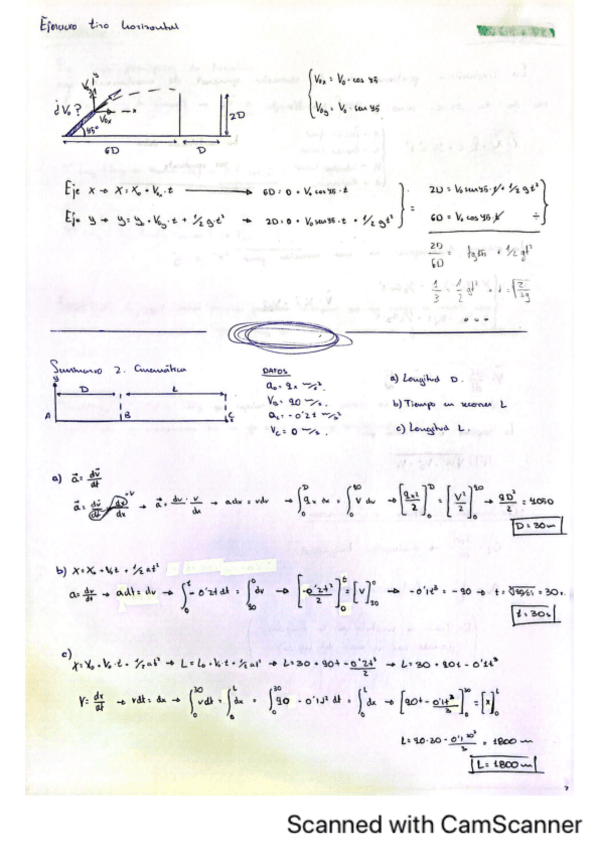 Ejercicio tiro horizontal
¿V₀?
V₀ₓ
x
y
45º
6D
D
2D
V₀ₓ = V₀ · cos 45
V₀y = V₀ · sen 45
Eje x → x = x₀ + V₀ₓ · t → 6D = 0 + V₀ cos 45 · t
Eje y → y = y₀ + V₀y · t + 1/2 g t² → 2D = 0 + V₀ sen 45 · t + 1/2 g t²
2D = V₀ sen 45 · t + 1/2 g t²
6D = V₀ cos 45 t
2D/6D = tg 45 + 1/2 g t²
1/3 = 1/2 g t²
Seminario 2. Cinemática
D L
A B C
DATOS
V_B = 90 m/s.
a_c = -0'2t m/s²
V_c = 0 m/s.
a) Longitud D.
b) Tiempo en recorrer L
c) Longitud L.
a) a = dv/dt
a = dv/dt · dx/dx → a = dv · v/dx → a dx = v dv → ∫₀ᴰ 9x dx = ∫₀⁹⁰ v dv → [9x²/2]₀ᴰ = [V²/2]₀⁹⁰ → 9D²/2 = 4050
D = 30m
b) x = x₀ + V₀t + 1/2 a t²
a = dv/dt → a dt = dv → ∫₀ᵗ -0'2t dt = ∫₉₀⁰ dv → [-0'2t²/2]₀ᵗ = [V]₉₀⁰ → -0'1t² = -90 → t = 30s
t = 30s
c)
x = x₀ + V₀ · t + 1/2 a t² → L = L₀ + V₀ t + 1/2 a t² → L = 30 + 90t - 0'2t³/2 → L = 30 + 90t - 0'1t³
V = dx/dt → v dt = dx → ∫₀³⁰ v dt = ∫₀ᴸ dx = ∫₀³⁰ 90 - 0'1t² dt = ∫₀ᴸ dx → [90t - 0'1t³/3]₀³⁰ = [x]₀ᴸ
L = 90 · 30 - 0'1 30³/3 = 1800 m
L = 1800 m
Scanned with CamScanner